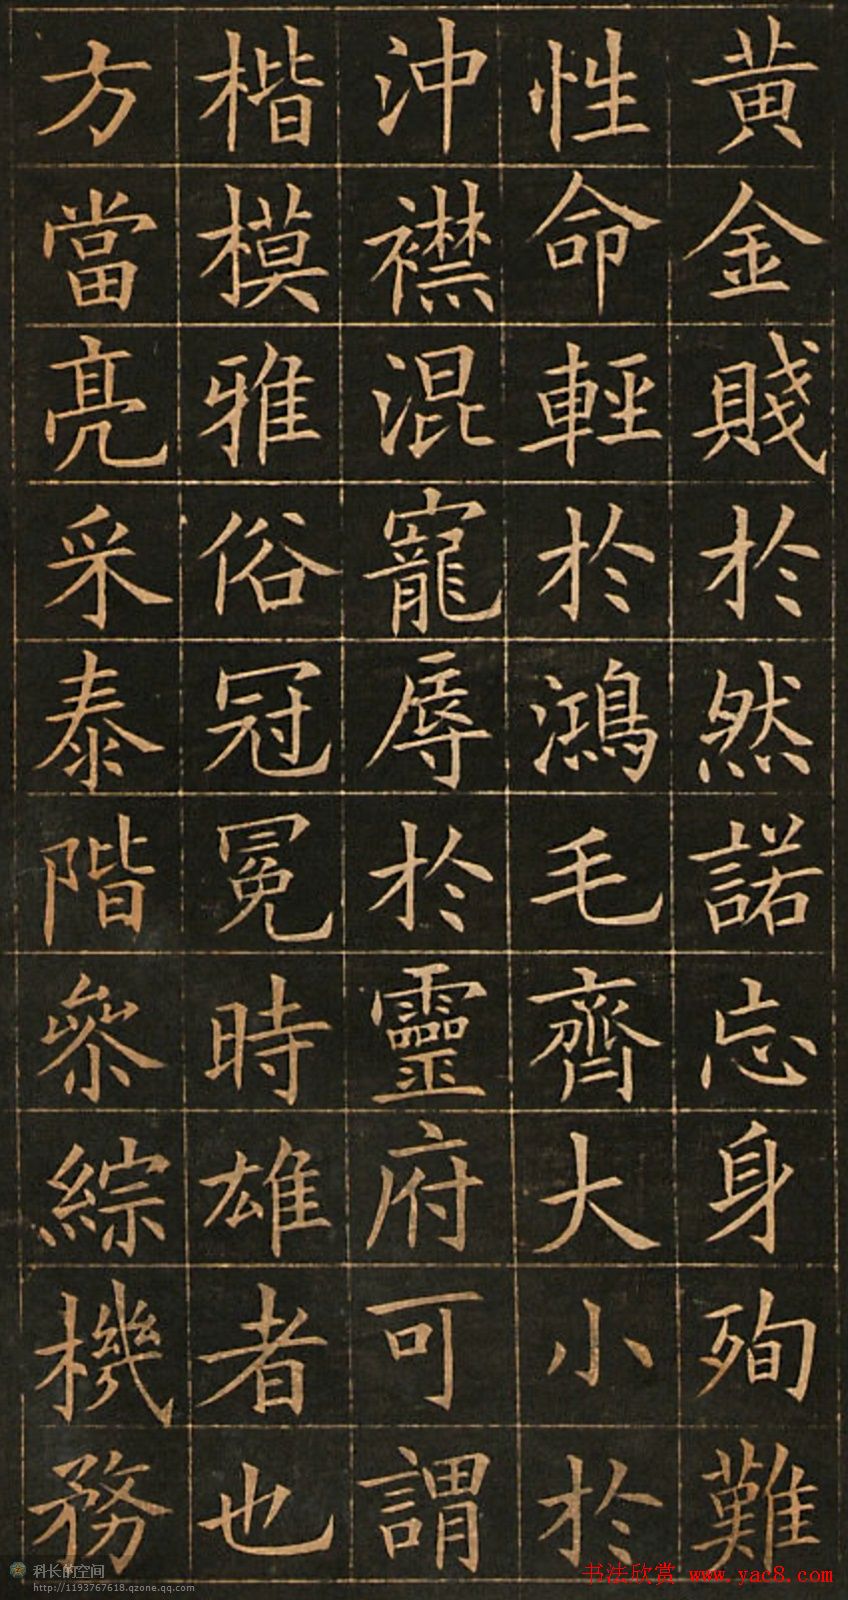 黃金賤於然諾忘身殉難
性命輕於鴻毛齊大小於
沖襟混寵辱於靈府可謂
楷模雅俗冠冕時雄者也
方當亮采泰階參綜機務
科长的空间
http://1193767618.qzone.qq.com
书法欣赏 www.yac8.com